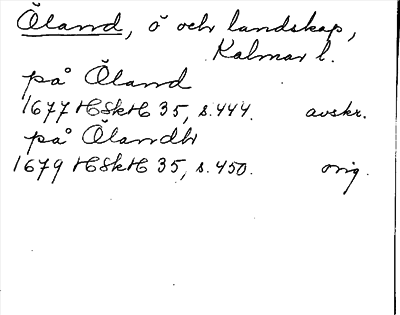 Öland, ö och landskap,
Kalmar l.
på Öland
1677 HSkH 35, s. 444. avskr.
på Ölandh
1679 HSkH 35, s. 450. orig.